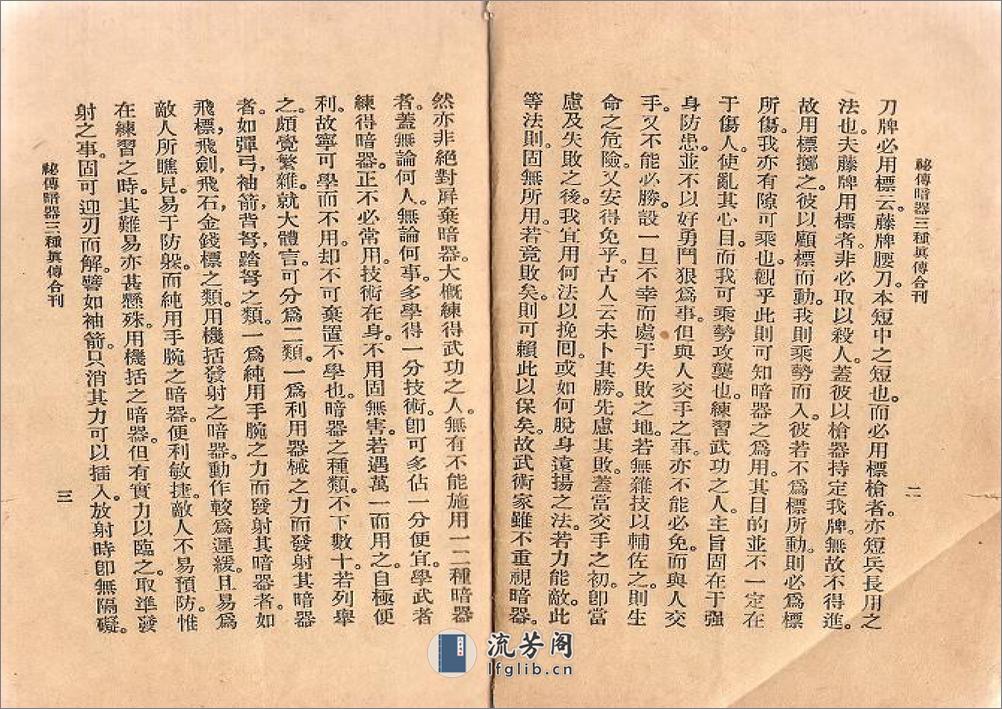 祕傳暗器三種眞傳合刊
二
刀牌必用標云藤牌腰刀。本短中之短也。而必用標槍者。亦短兵長用之
法也。夫藤牌用標者。非必取以殺人。蓋彼以槍器持定我牌。無故不得進。
故用標擲之。彼以顧標而動。我則乘勢而入。彼若不爲標所動。則必爲標
所傷。我亦有隙可乘也。觀乎此則可知暗器之爲用。其目的並不一定在
于傷人。使亂其心目。而我可乘勢攻襲也。練習武功之人。主旨固在于强
身防患。並不以好勇鬥狠爲事。但與人交手之事。亦不能必免。而與人交
手。又不能必勝。設一旦不幸而處于失敗之地。若無雜技以輔佐之。則生
命之危險。又安得免乎。古人云。未卜其勝。先慮其敗。蓋當交手之初。卽當
慮及失敗之後。我宜用何法以挽回。或如何脫身遠揚之法。若力能敵。此
等法則。固無所用。若竟敗矣。則可賴此以保矣。故武術家雖不重視暗器。
然亦非絕對屏棄暗器。大概練得武功之人。無有不能施用一二種暗器
者。蓋無論何人。無論何事。多學得一分技術。卽可多佔一分便宜。學武者
練得暗器。正不必常用。技術在身。不用固無害。若遇萬一而用之。自極便
利。故寧可學而不用。却不可棄置不學也。暗器之種類。不下數十。若列舉
之。頗覺繁雜。就大體言。可分爲二類。一爲利用器械之力而發射其暗器
者。如彈弓，袖箭背弩踏弩之類。一爲純用手腕之力而發射其暗器者。如
飛標，飛劍，飛石金錢標之類。用機括發射之暗器。動作較爲遲緩。且易爲
敵人所瞧見。易于防躲。而純用手腕之暗器。便利敏捷。敵人不易預防。惟
在練習之時。其難易亦甚懸殊。用機括之暗器。但有實力以臨之。取準發
射之事。固可迎刃而解。譬如袖箭。只消其力可以插入。放射時卽無隔礙。
祕傳暗器三種眞傳合刊
三
流芳阁
lfglib.cn